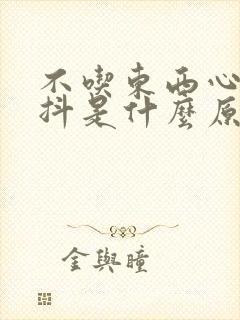 不喫東西心
抖是什麼原
金與瞳